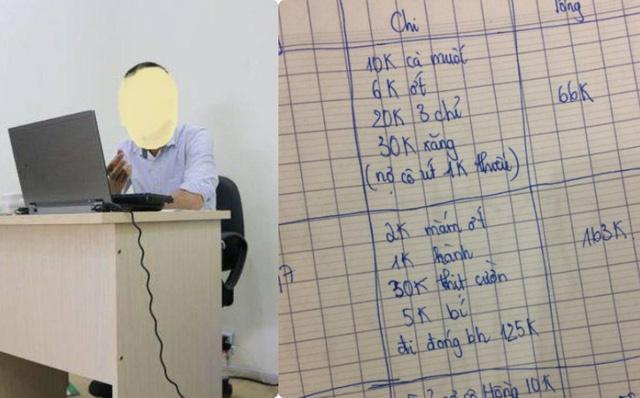 Chi
Tổng
10K cà muốt
6K ớt
20K 3 chỉ
30K xăng
(nợ cô út 1K thuốc)
66K
2K mắm ớt
1K hành
30K thịt cuốn
5K bí
đi đóng bh 125K
163K
17
Hồng 10K